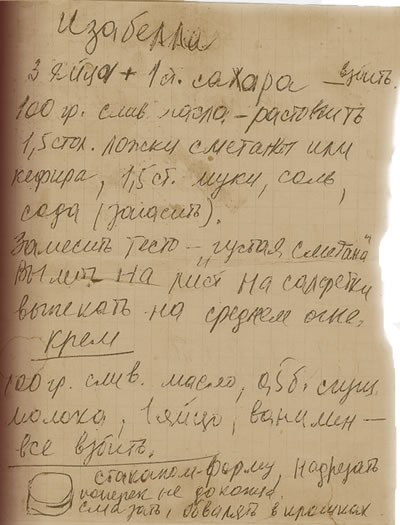 Изабелла
3 яйца + 1 ст. сахара – взбить.
100 гр. слив. масла – растопить
1,5 стол. ложки сметаны или
кефира, 1,5 ст. муки, соль,
сода (загасить).
Замесить тесто – "густая сметана"
Вылить на лист на салфетки
выпекать на среднем огне.
Крем
100 гр. слив. масло, 0,5 б. сгущ.
молока, 1 яйцо, ванилин –
все взбить.
стаканом-форму, надрезать
поперек не до конца.
смазать, обвалять в крошках